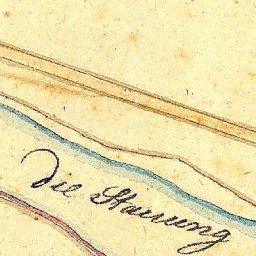 Die Stauung